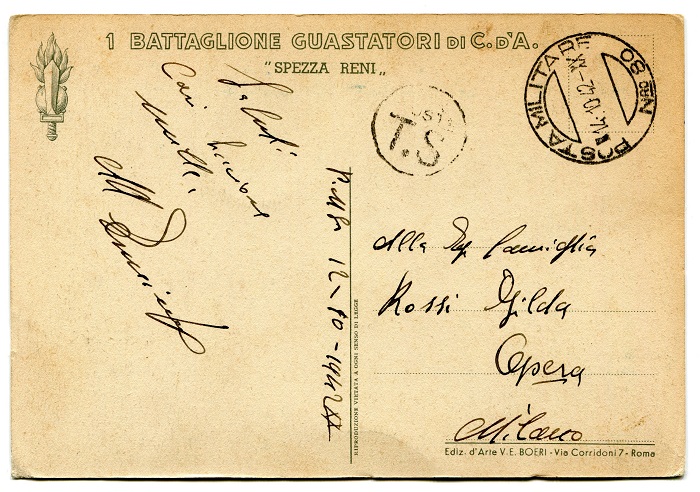 1 BATTAGLIONE GUASTATORI DI C. D'A.
"SPEZZA RENI„
POSTA MILITARE
NRO 80
14.10.42-XX
T.S.
Saluti
Cari
P.M. 12-10-1942 XX
Alla Famiglia
Rossi Gilda
Opera
Milano
RIPRODUZIONE VIETATA A OGNI SENSO DI LEGGE
Ediz. d'Arte V. E. BOERI - Via Corridoni 7 - Roma